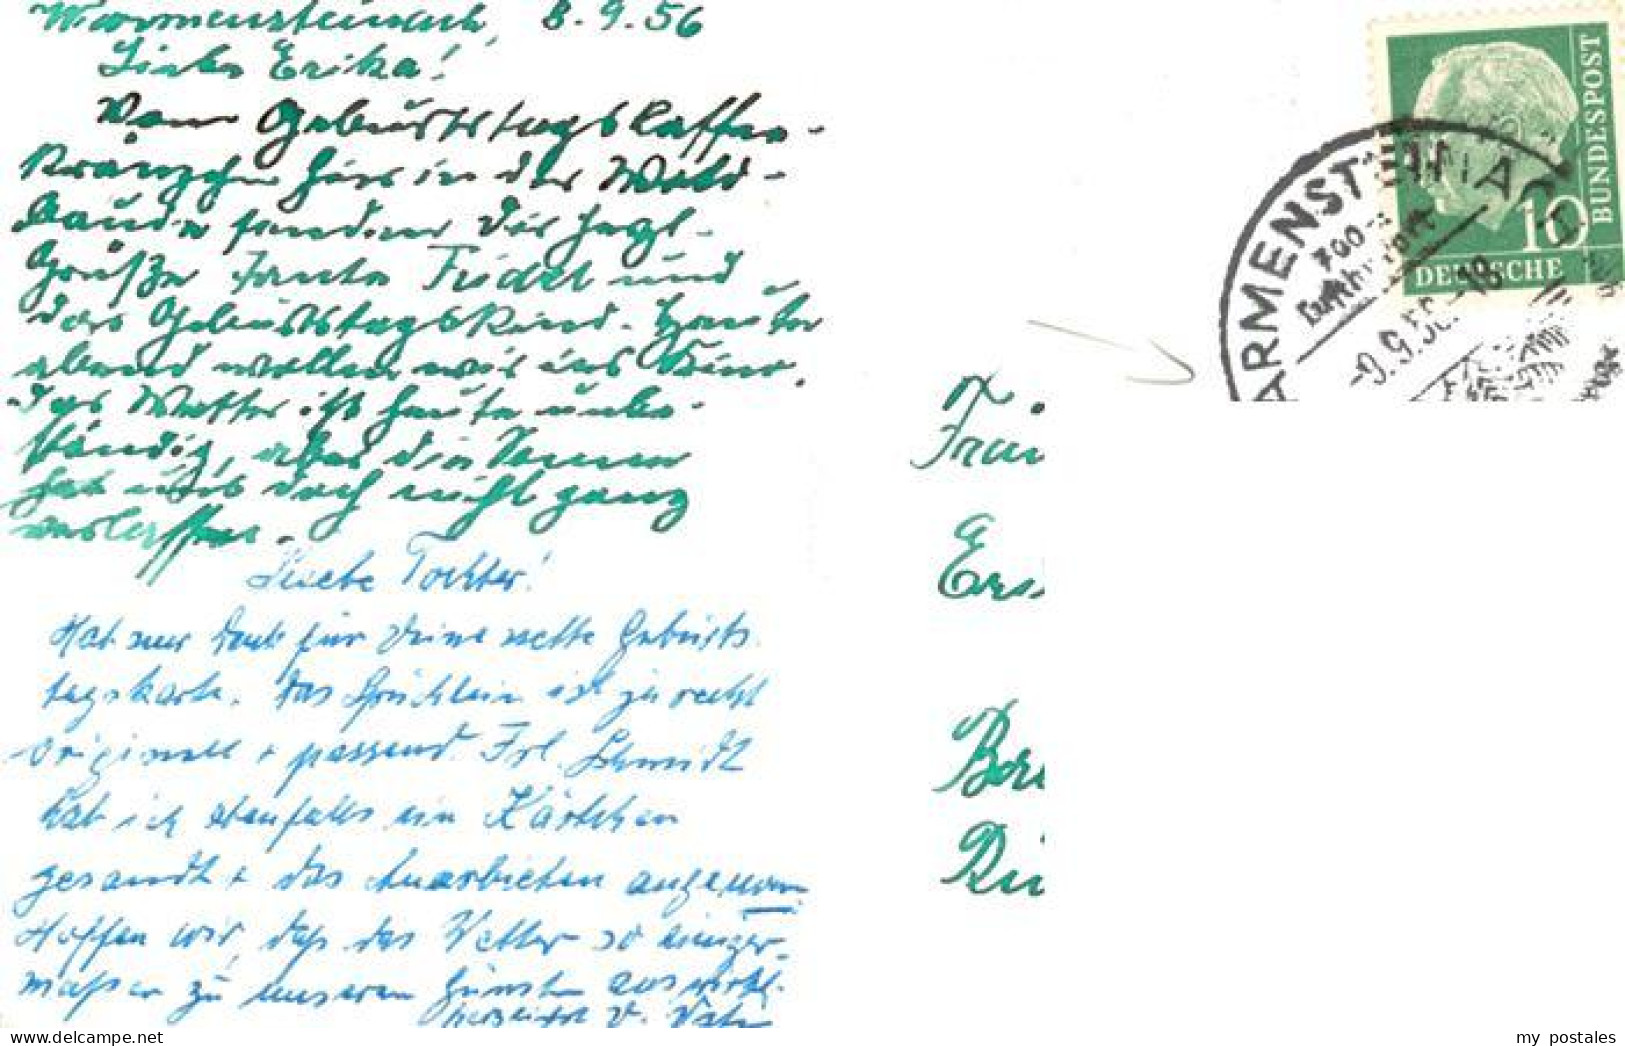 Warmensteinach, 8.9.56
Liebe Erika!
Vom Geburtstagskaffee-
kränzchen hier in der Wald-
baude senden Dir herzl.
Grüße Tante Friedel und
das Geburtstagskind. Heute
abend wollen wir ins Kino.
Das Wetter ist heute unbe-
ständig, aber die Sonne
hat uns doch nicht ganz
verlassen.
Liebe Tochter!
Hab nur Dank für Deine nette Geburts
tagskarte. Das Sprüchlein ist ja recht
originell + passend. Frl. Schmidt
hab ich ebenfalls ein Kärtchen
gesandt + das Anerbieten angenom
Hoffen wir, daß das Wetter so einiger-
maßen zu unseren Gunsten
V. Vater
Frau
Bundespost
10
DEUTSCHE
ARMENSTEINAC
my postales